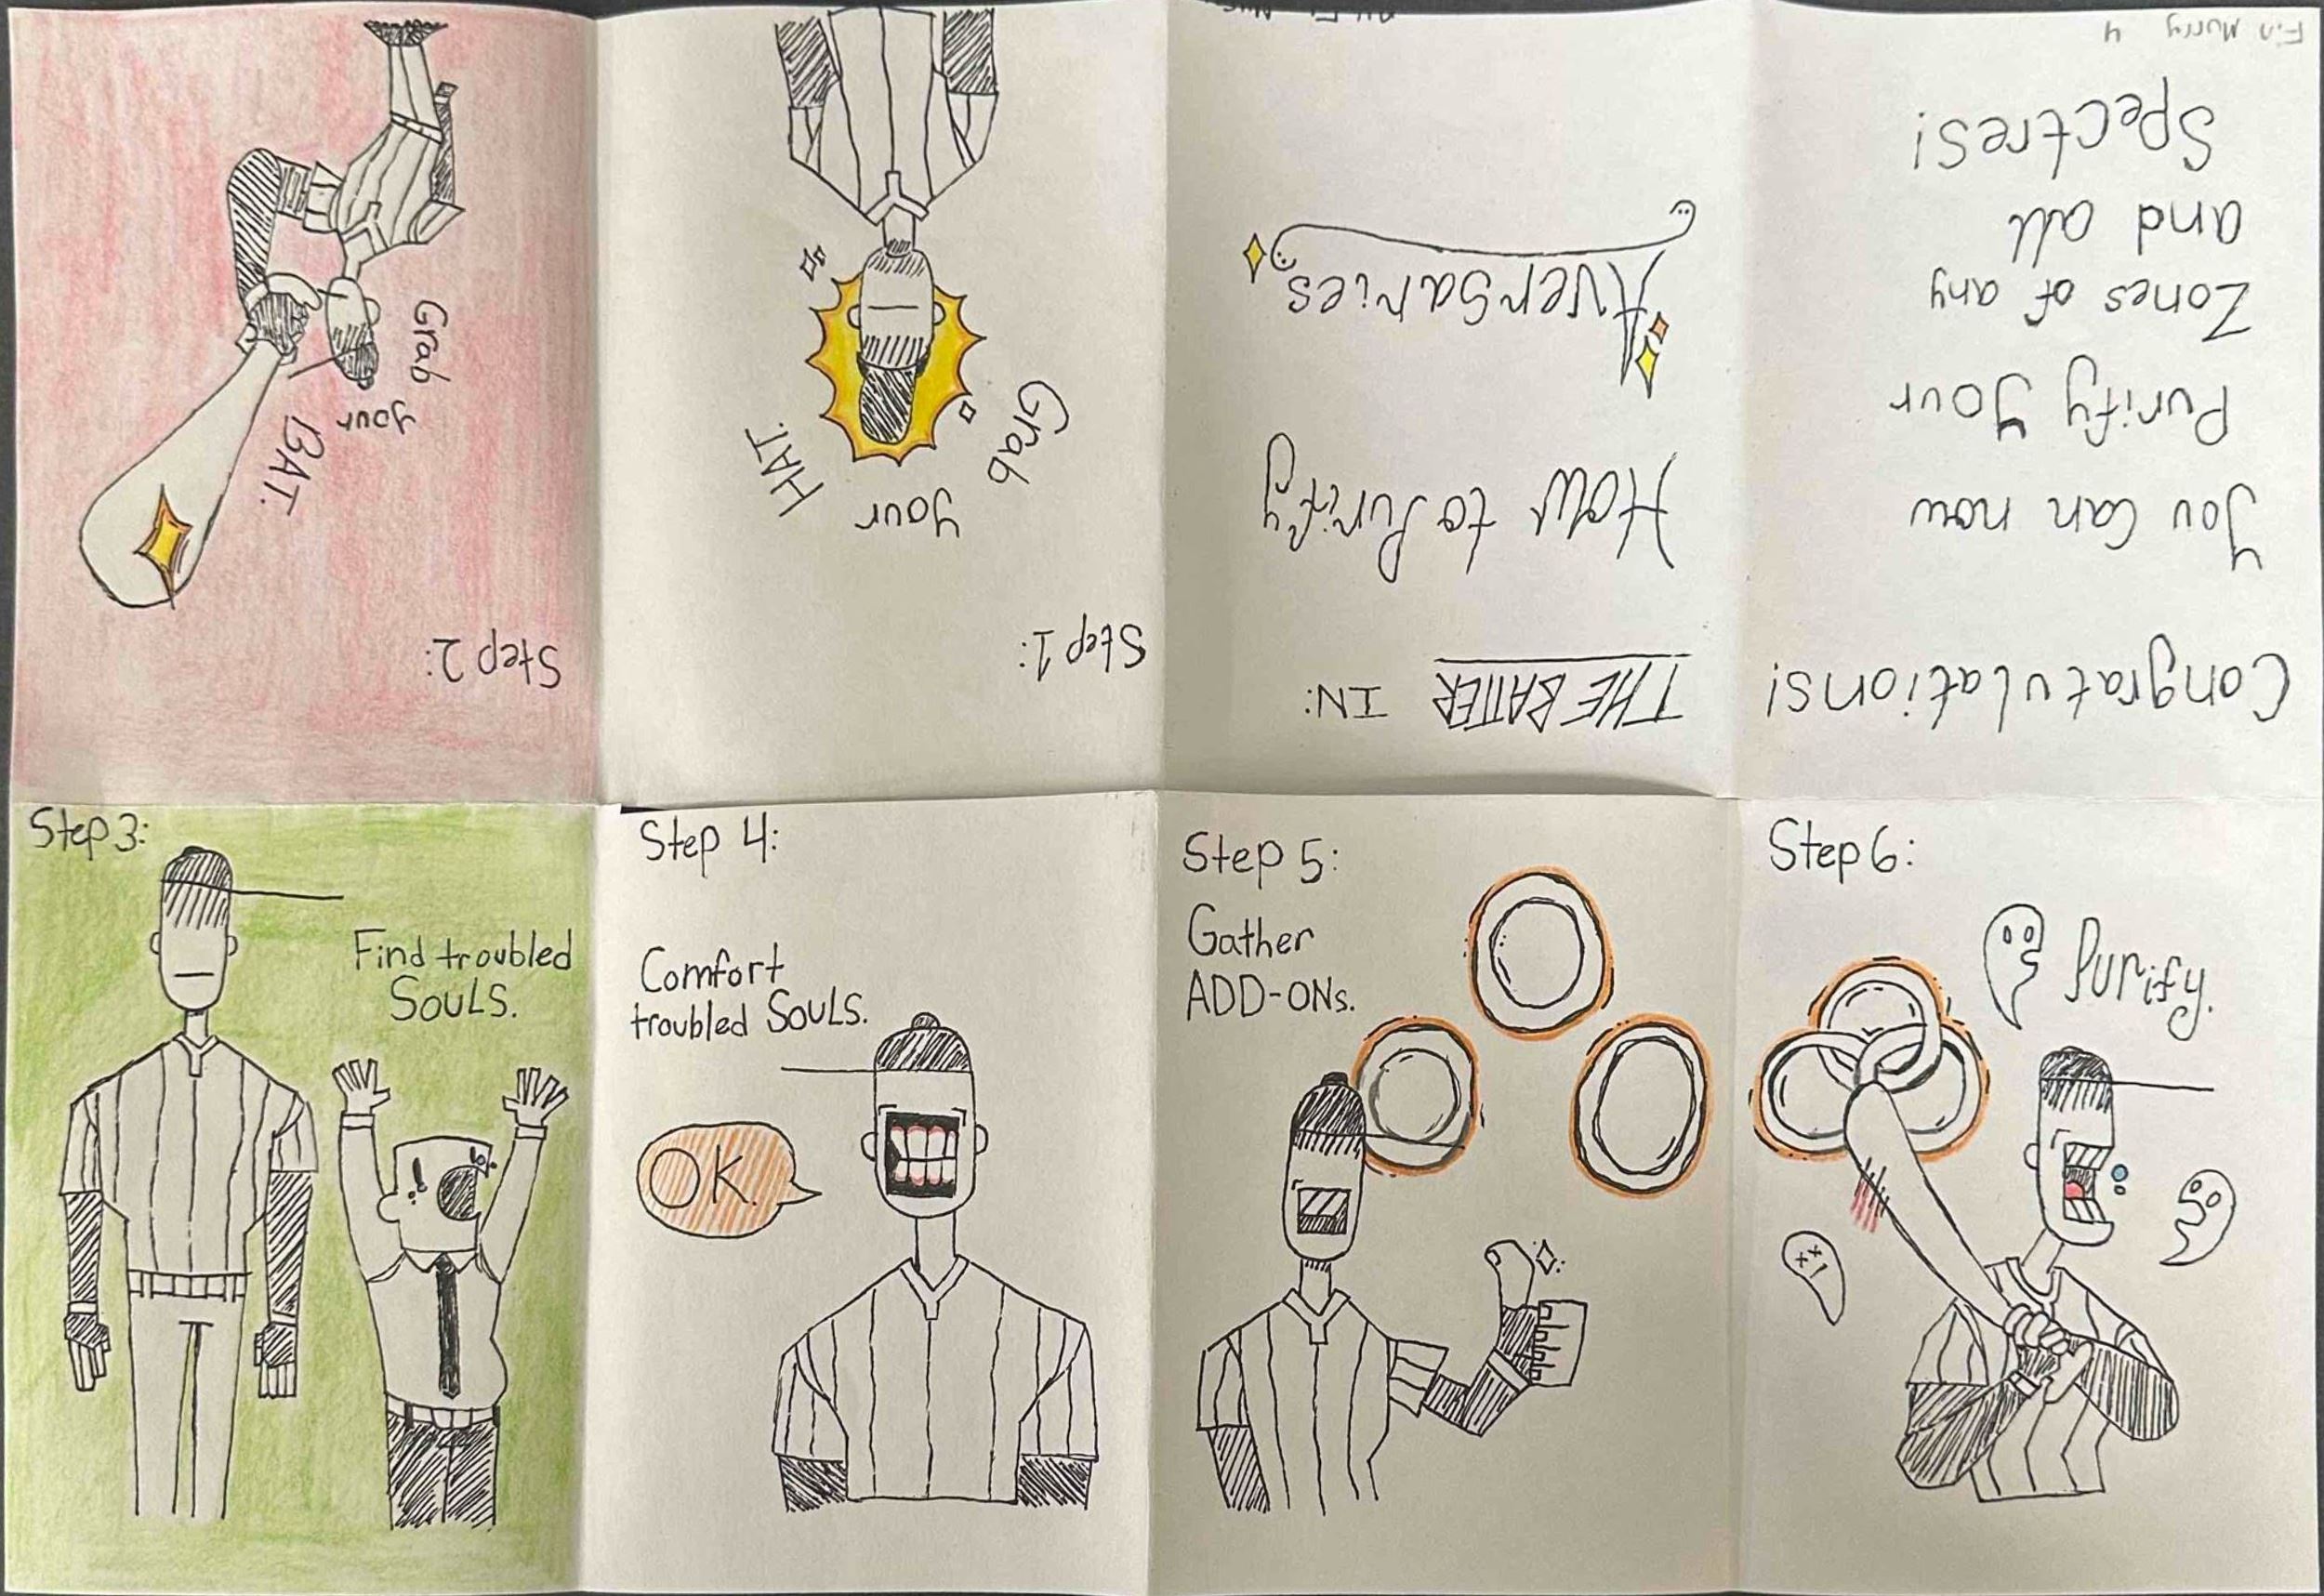 THE BATTER IN:
How to Purify
Aversaries
Step 1:
Grab your HAT.
Step 2:
Grab your BAT.
Step 3:
Find troubled
SOULS.
Step 4:
Comfort
troubled SOULS.
OK.
Step 5:
Gather
ADD-ONs.
Step 6:
Purify.
Congratulations!
You can now
Purify your
Zones of any
and all
Spectres!
Fin Murry 4